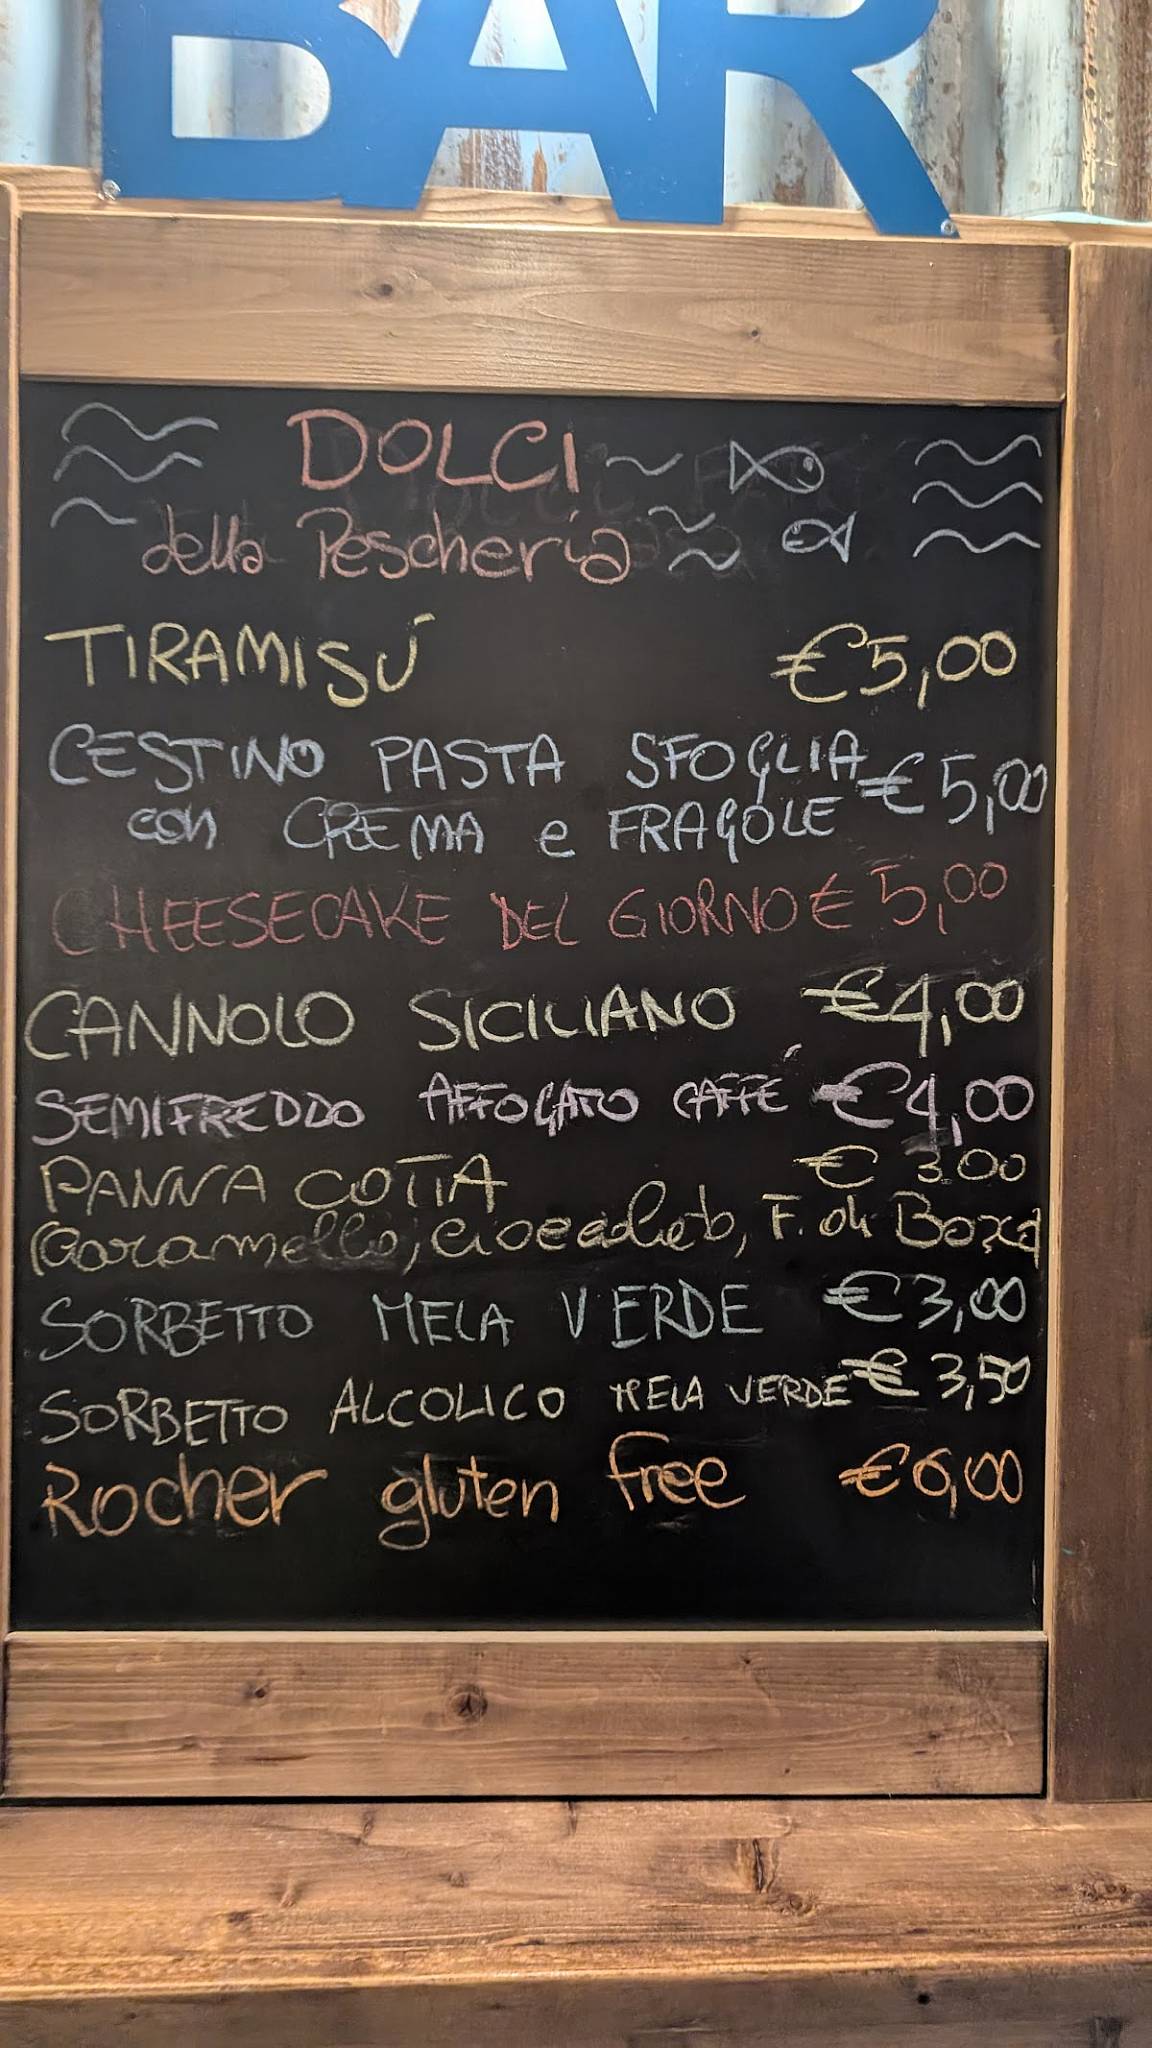 BAR
DOLCI
della Pescheria
TIRAMISÚ €5,00
CESTINO PASTA SFOGLIA €5,00
con CREMA e FRAGOLE
CHEESECAKE DEL GIORNO € 5,00
CANNOLO SICILIANO €4,00
SEMIFREDDO AFFOGATO CAFFÉ €4,00
PANNA COTTA € 3.00
(Caramello, Cioccolato, F. di Bosco)
SORBETTO MELA VERDE €3,00
SORBETTO ALCOLICO MELA VERDE € 3,50
Rocher gluten free €6,00